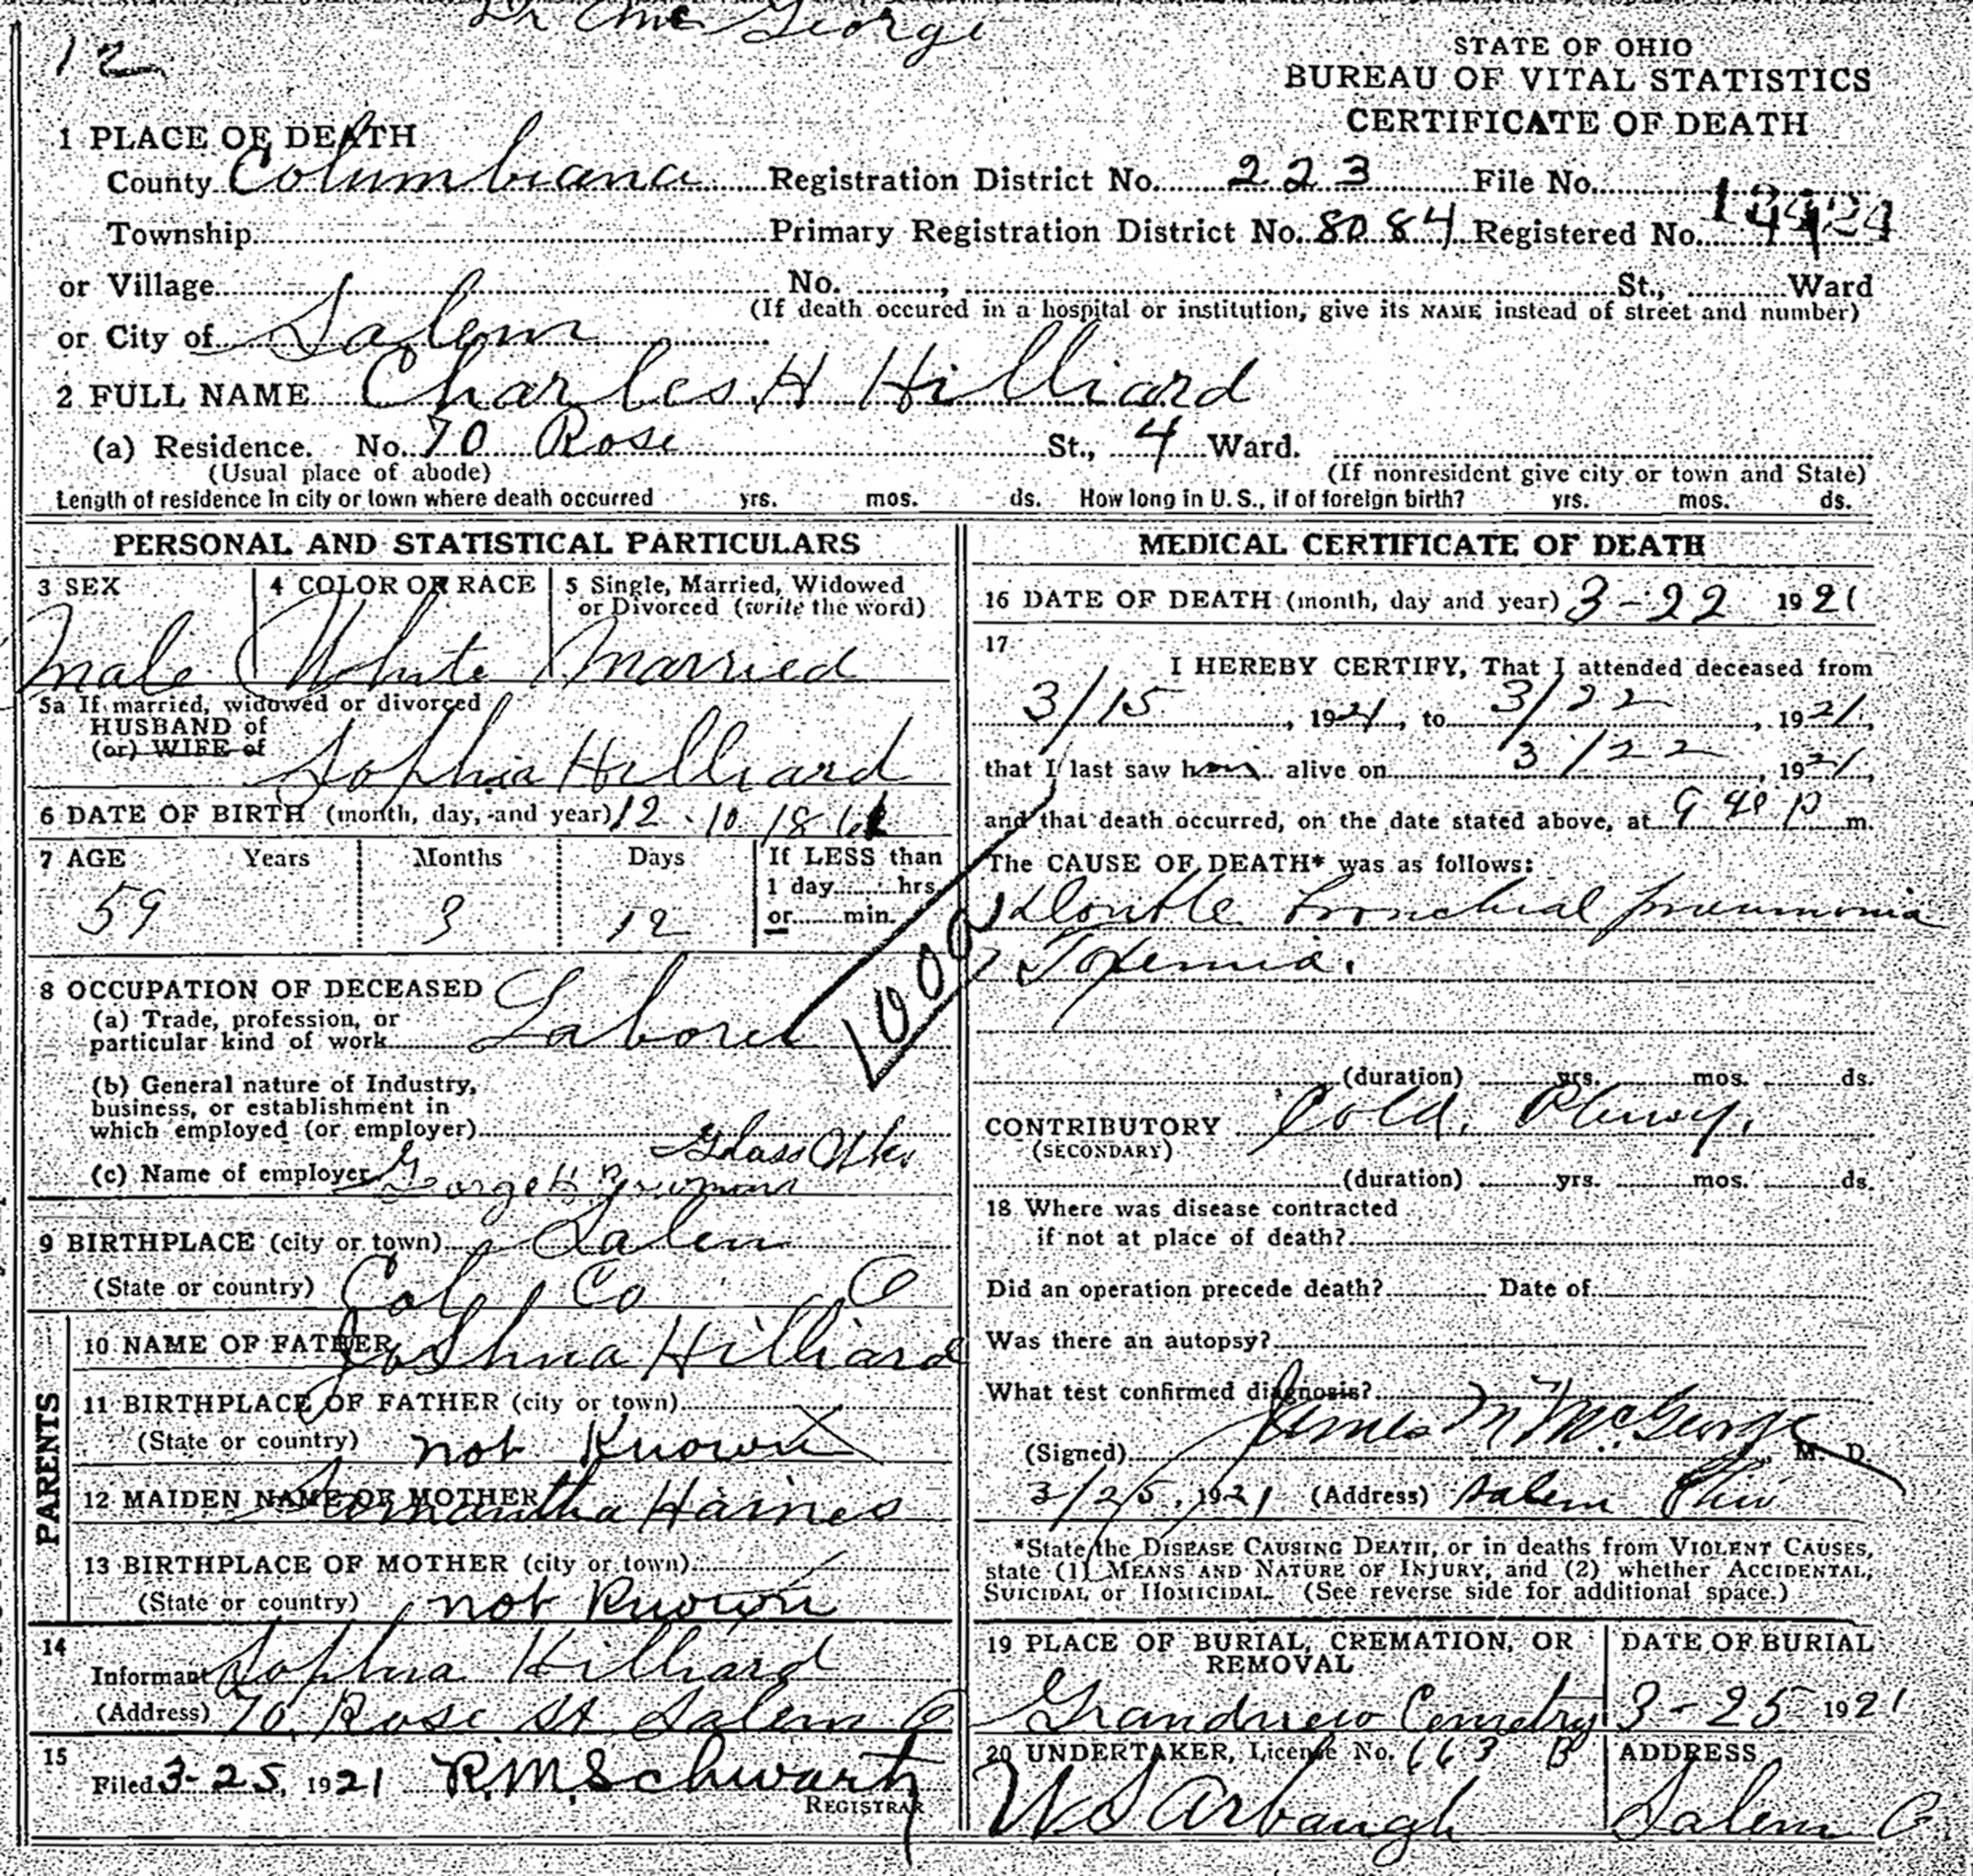 12
STATE OF OHIO
BUREAU OF VITAL STATISTICS
CERTIFICATE OF DEATH
1 PLACE OF DEATH
County Columbiana Registration District No. 223 File No.
Township Primary Registration District No. 8084 Registered No.
or Village No. , St., Ward
(If death occured in a hospital or institution, give its NAME instead of street and number)
or City of Salem
2 FULL NAME Charles H Hilliard
(a) Residence. No. 70 Rose St., 4 Ward.
(Usual place of abode) (If nonresident give city or town and State)
Length of residence in city or town where death occurred yrs. mos. ds. How long in U. S., if of foreign birth? yrs. mos. ds.
PERSONAL AND STATISTICAL PARTICULARS
3 SEX 4 COLOR OR RACE 5 Single, Married, Widowed
or Divorced (write the word)
Male White Married
5a If married, widowed or divorced
HUSBAND of
(or) WIFE of Sophia Hilliard
6 DATE OF BIRTH (month, day, and year) 12 - 10
7 AGE Years Months Days If LESS than
1 day hrs.
or min.
59 3 12
8 OCCUPATION OF DECEASED
(a) Trade, profession, or
particular kind of work Laborer
(b) General nature of Industry,
business, or establishment in
which employed (or employer)
Glass
(c) Name of employer George
9 BIRTHPLACE (city or town) Salem
(State or country) Col Co O
PARENTS
10 NAME OF FATHER Joshua Hilliard
11 BIRTHPLACE OF FATHER (city or town)
(State or country) not Known
12 MAIDEN NAME OF MOTHER Samantha Haines
13 BIRTHPLACE OF MOTHER (city or town)
(State or country) not Known
14
Informant Sophia Hilliard
(Address) 70 Rose St Salem O
15
Filed 3-25, 1921 R.M. Schwartz
REGISTRAR
MEDICAL CERTIFICATE OF DEATH
16 DATE OF DEATH (month, day and year) 3-22 1921
17
I HEREBY CERTIFY, That I attended deceased from
3/15, 1921, to 3/22, 1921,
that I last saw him alive on 3/22, 1921,
and that death occurred, on the date stated above, at 9 40 p m.
The CAUSE OF DEATH* was as follows:
Double bronchial pneumonia
Toxemia.
(duration) yrs. mos. ds.
CONTRIBUTORY Cold, Pleurisy.
(SECONDARY)
(duration) yrs. mos. ds.
18 Where was disease contracted
if not at place of death?
Did an operation precede death? Date of
Was there an autopsy?
What test confirmed diagnosis?
(Signed) James M McGeorge M. D.
3/25, 1921 (Address) Salem Ohio
*State the DISEASE CAUSING DEATH, or in deaths from VIOLENT CAUSES,
state (1) MEANS AND NATURE OF INJURY, and (2) whether ACCIDENTAL,
SUICIDAL or HOMICIDAL. (See reverse side for additional space.)
19 PLACE OF BURIAL, CREMATION, OR
REMOVAL
DATE OF BURIAL
Grandview Cemetry 3-25 1921
20 UNDERTAKER, License No. 663 B ADDRESS
W S Arbaugh Salem O